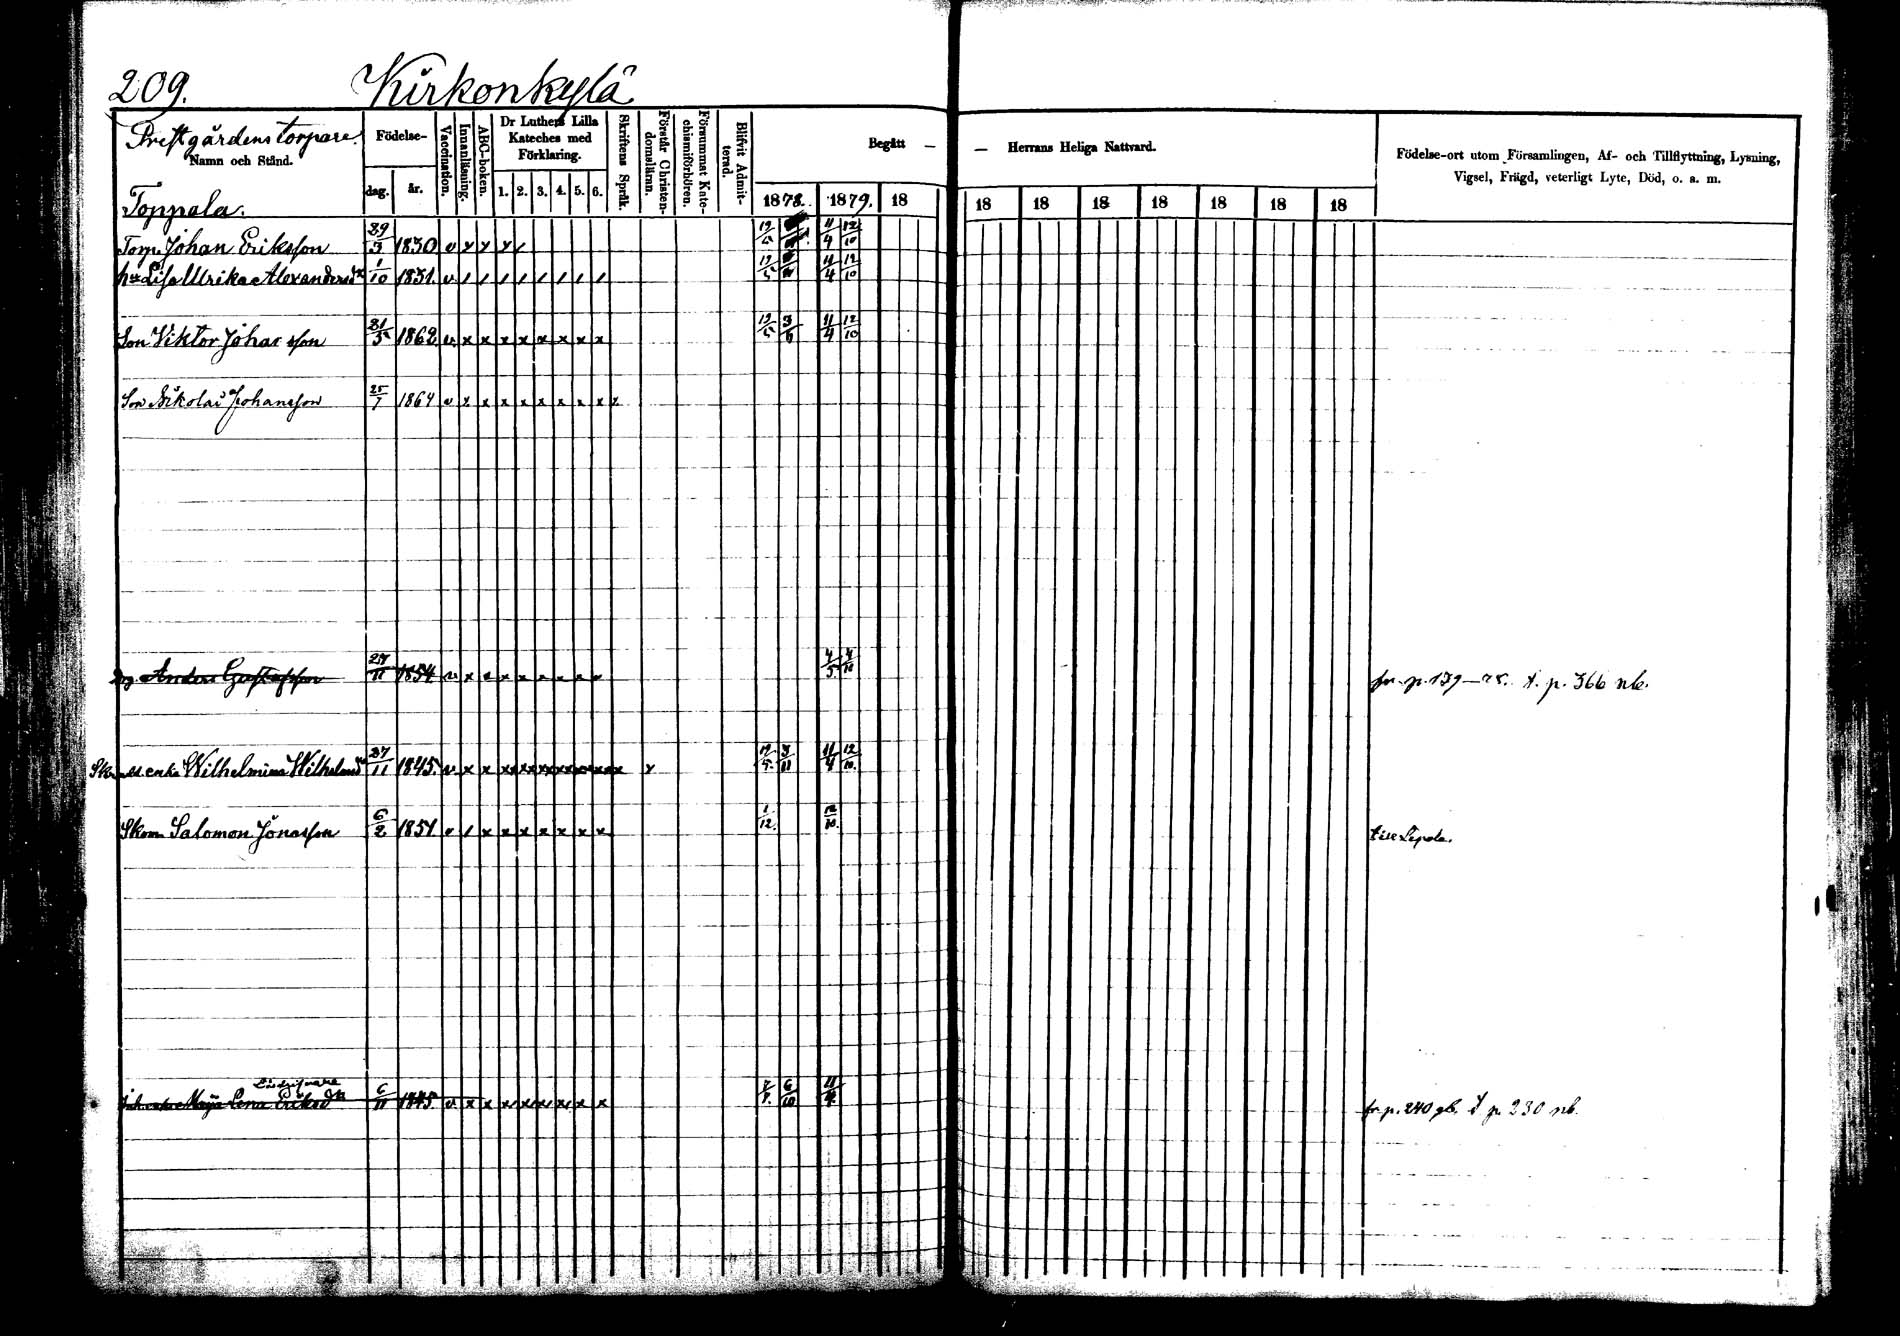 209. Kirkonkylä
Prestgårdens torpare.
Namn och Stånd.
Födelse-
dag. år.
Vaccination.
Innanläsning.
ABC-boken.
Dr Luthers Lilla
Kateches med
Förklaring.
1. 2. 3. 4. 5. 6.
Skriftens Språk.
Förstår Christen-
domsläran.
Försummat Kate-
chismiförhören.
Blifvit Admit-
terad.
Begått —
— Herrans Heliga Nattvard.
Födelse-ort utom Församlingen, Af- och Tillflyttning, Lysning,
Vigsel, Frägd, veterligt Lyte, Död, o. a. m.
1878. 1879. 18 18 18 18 18 18 18 18
Toppala.
Torp. Johan Eriksson 1830 v 19/5 11/4 12/10
Lisa Ulrika Alexandersd 1/10 1831. v 19/5 11/4 12/10
Son Viktor Johansson 31/5 1862 v. x x x x x x x x 19/5 3/6 11/4 12/10
Son Nikolai Johansson 25/7 1864 v x x x x x x x x x
Anders Gustafsson 27/11 1854. v x x x x x x x 4/5 4/10 fr. p. 139—78. t. p. 366 nb.
enka Wilhelmina Wilhelmsd 27/11 1845. v x x x x x x x x x 19/5. 3/11 11/4 12/10.
Skom. Salomon Jonasson 6/2 1851 v / x x x x x x x 1/12. 12/10. till Lepola.
Maja Lena Eriksd 6/11 1845 v x x x x x x x x 6/10 11/4. fr. p. 240 gb. t p. 230 nb.